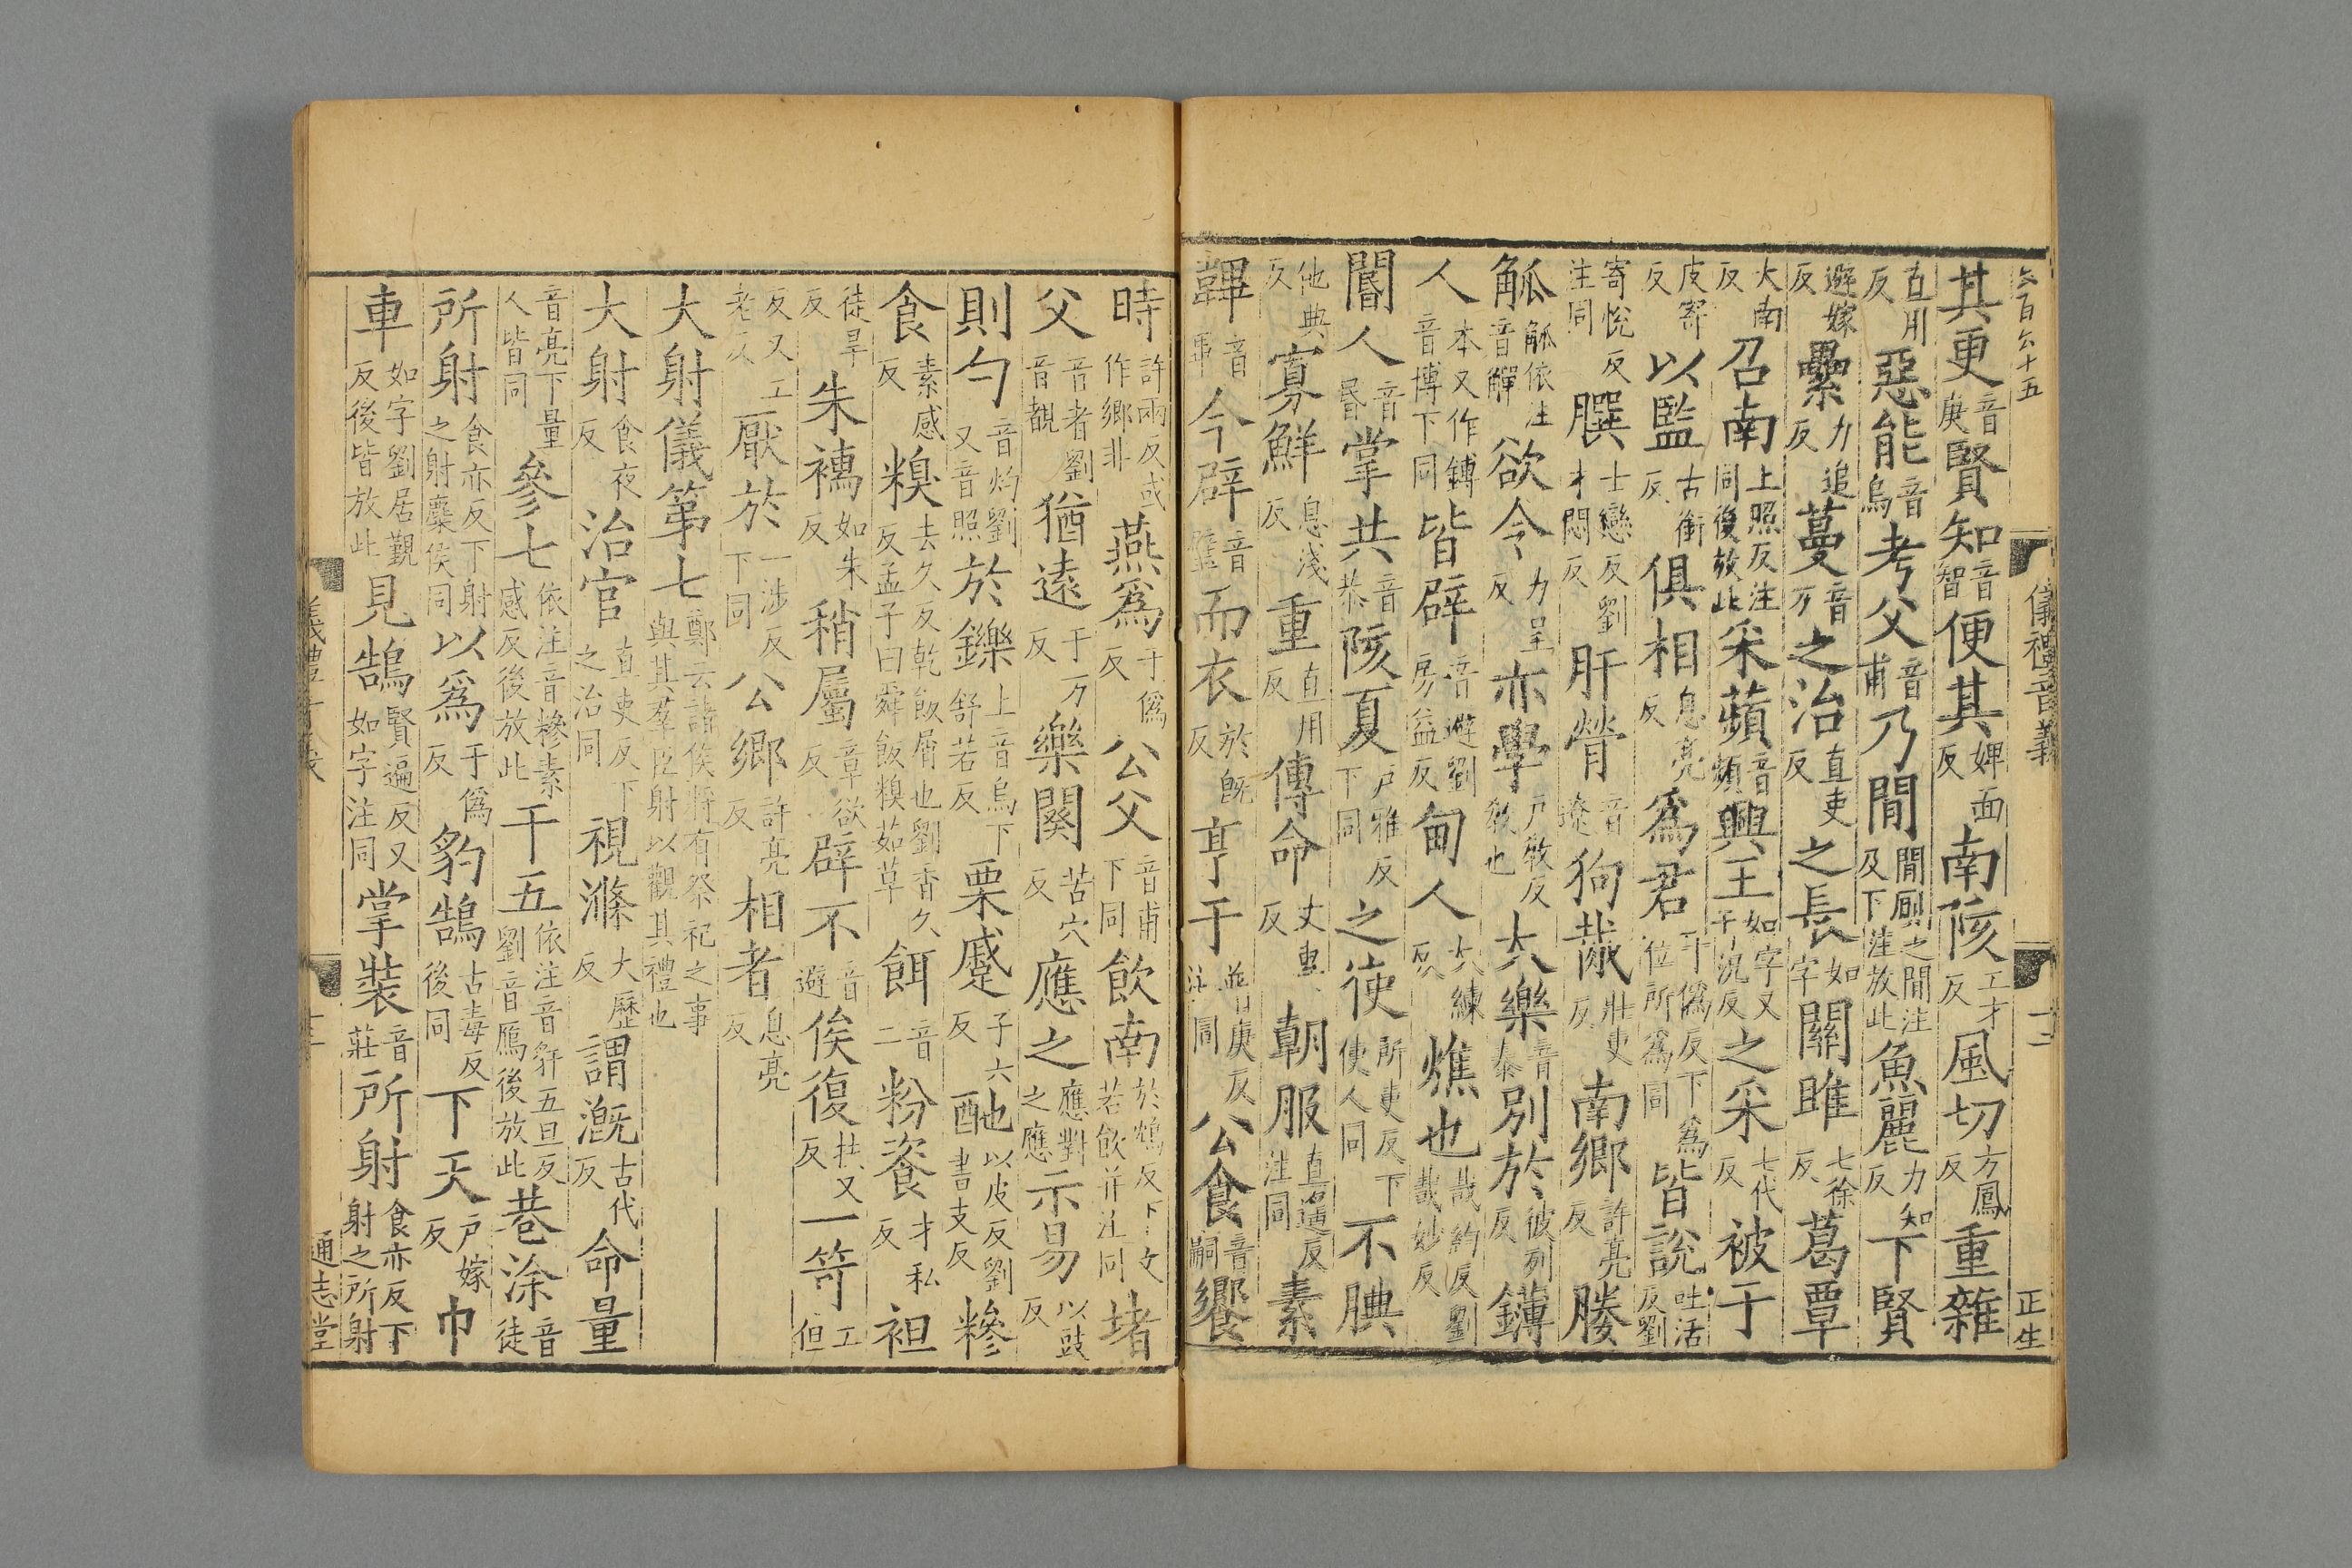 儀禮音義 十二 正生
其更音庚賢知音智便其婢面反南陔工才反風切方鳳反重雜
直用反惡能音烏考父音甫乃閒閒厠之閒注及下注放此魚麗力知反下賢
遐嫁反纍力追反蔓音万之治直吏反之長如字關雎七徐反葛覃
大南反召南上照反注同後放此采蘋音頻興王如字又于況反之采七代反被于
皮寄反以監古銜反俱相息亮反爲君于僞反下爲位所爲同皆說吐活反劉
寄悅反注同膞士戀反劉才悶反肝膋音遼狗胾壯吏反南鄉許亮反媵
觚觚依注音觶欲令力呈反亦學戶敎反敎也大樂音泰別於彼列反鑮
人本又作鎛音博下同皆辟音避劉房益反甸人大練反燋也哉約反劉哉妙反
閽人音昏掌共音恭陔夏戶雅反下同之使所吏反下使人同不腆
他典反寡鮮息淺反重直用反傳命丈專反朝服直遙反注同素
韠音畢今辟音璧而衣於旣反亨于普庚反注同公食音嗣饗
時許兩反或作鄉非燕爲于僞反公父音甫下同飲南於鴆反下文若飲并注同堵
父音者劉音覩猶遠于万反樂闋苦穴反應之應對之應示易以豉反
則勺音灼劉又音照於鑠上音烏下舒若反栗蹙子六反酏以皮反劉書支反糝
食素感反糗去久反乾飯屑也劉香久反孟子曰舜飯糗茹草餌音二粉餈才私反袒
徒旱反朱襦如朱反稍屬章欲反辟不音避俟復扶又反一笴工但
反又工老反厭於一涉反下同公鄉許亮反相者息亮反
大射儀第七鄭云諸侯將有祭祀之事與其羣臣射以觀其禮也
大射食夜反治官直吏反下之治同視滌大歷反謂漑古代反命量
音亮下量人皆同參七依注音糝素感反後放此干五依注音豻五旦反劉音鴈後放此巷涂音徒
所射食亦反下射之射麋侯同以爲于僞反豹鵠古毒反後同下天戶嫁反巾
車如字劉居覲反後皆放此見鵠賢遍反又如字注同掌裝音莊所射食亦反下射之所射
通志堂